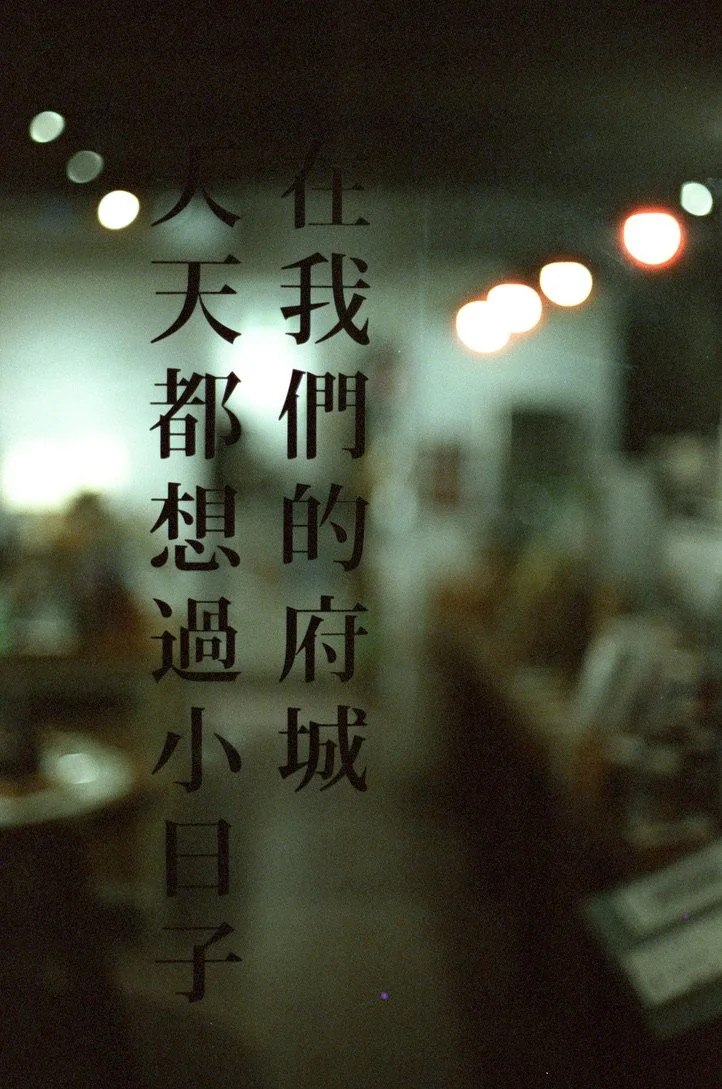 在我們的府城
天天都想過小日子